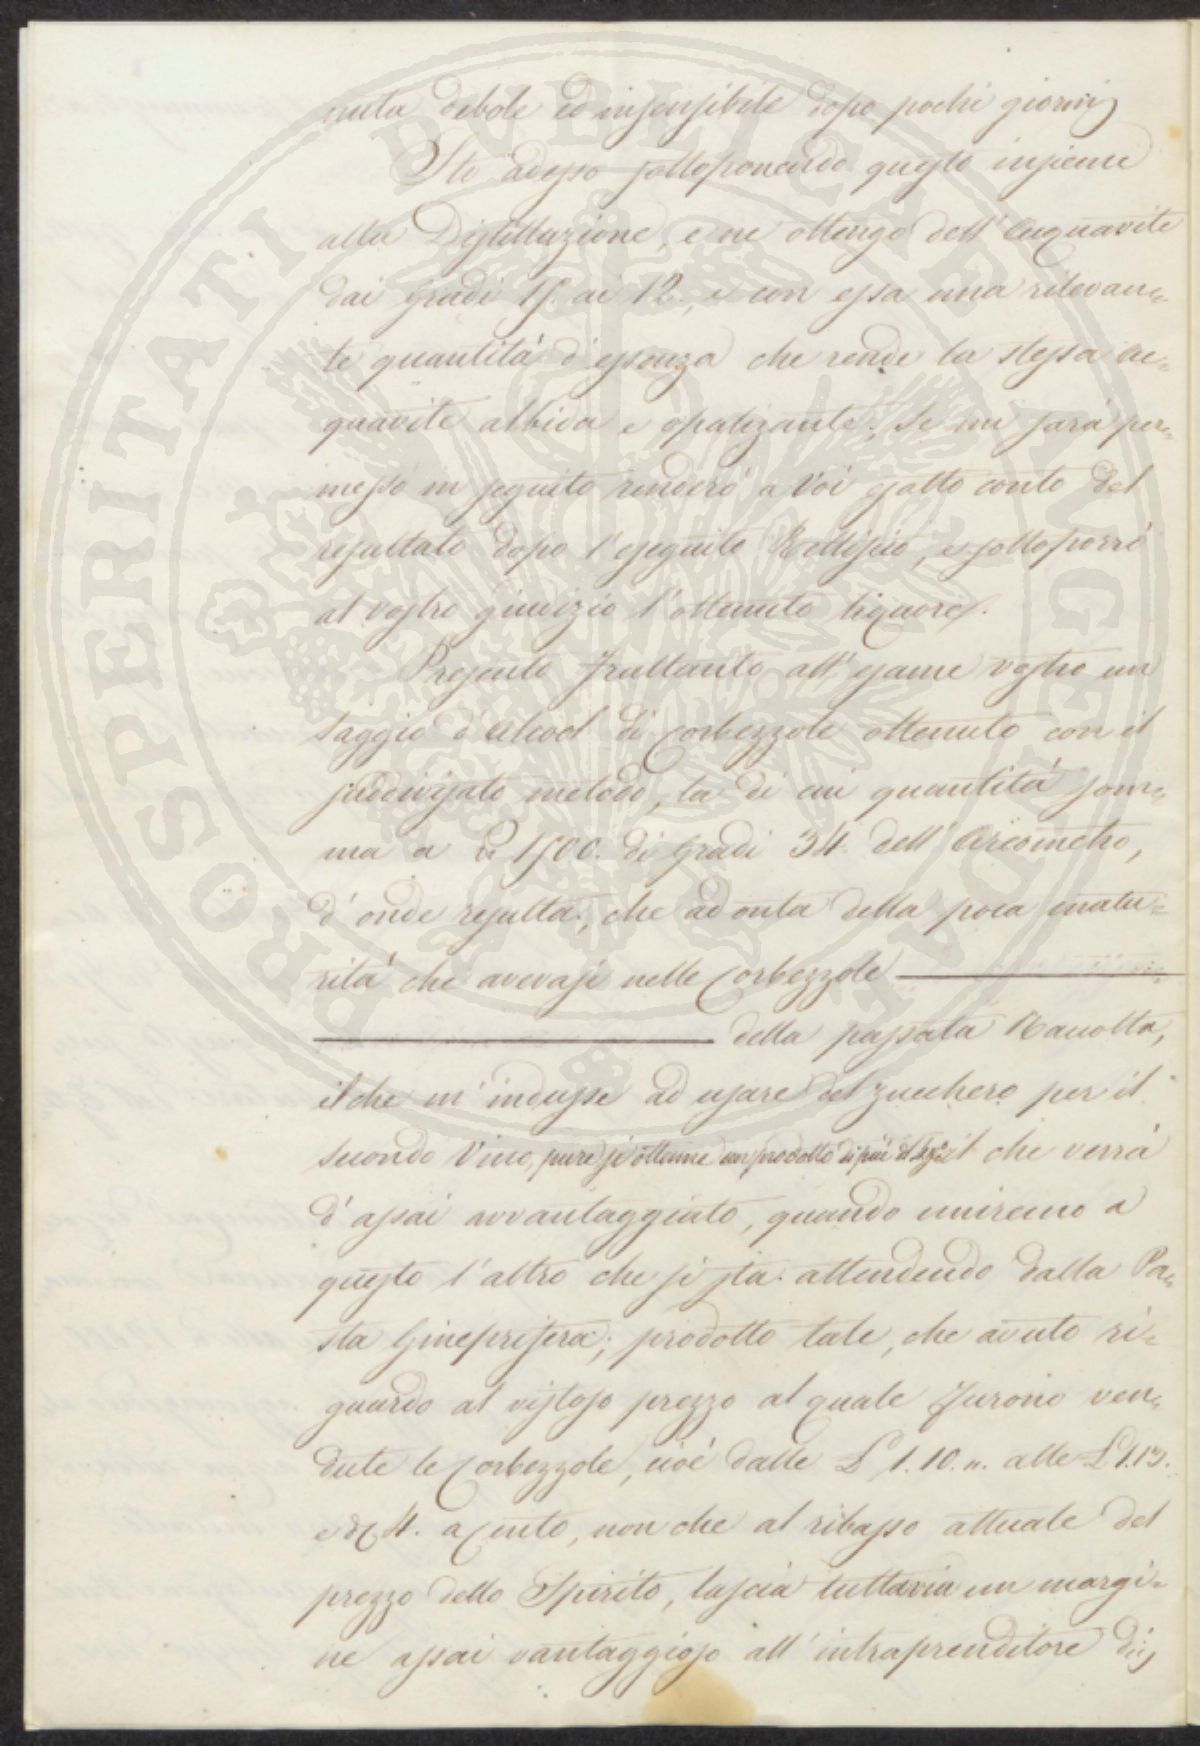 nuta debole ed insensibile dopo pochi giorni
Sto adesso sottoponendo questo insieme
alla Distillazione, e ne ottengo dell' Acquavite
dai Gradi 15. ai 12., e con essa una rilevan=
te quantità d'essenza che rende la stessa Ac=
quavite albida e opalizante; Se mi sarà per=
messo in seguito renderò a Voi esatto conto del
resultato dopo l'eseguito Rettifico, e sottoporrò
al vostro giudizio l'ottenuto liquore.
Presento frattanto all' esame vostro un
saggio d'alcool di Corbezzole ottenuto con il
suddivisato metodo, la di cui quantità som=
ma a 1500. di Gradi 34. dell' Areometro,
d'onde resulta, che ad onta della poca matu=
rità che avevasi nelle Corbezzole
della passata Raccolta,
il che m'indusse ad usare del zucchero per il
secondo Vino, pure si ottenne un prodotto di più il che verrà
d'assai avvantaggiato, quando uniremo a
questo l'altro che si sta attendendo dalla Pa=
sta Gineprifera; prodotto tale, che avuto ri=
guardo al vistoso prezzo al quale furono ven=
dute le Corbezzole, cioè dalle £ 1.10.„. alle £ 1.13.
e 4. a Cento, non che al ribasso attuale del
prezzo dello Spirito, lascia tuttavia un margi=
ne assai vantaggioso all' intraprenditore di
PROSPERITATI PUBLICAE AUGENDAE